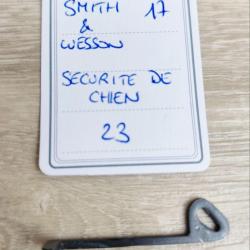 SMITH 17
&
WESSON
SECURITE DE
CHIEN
23